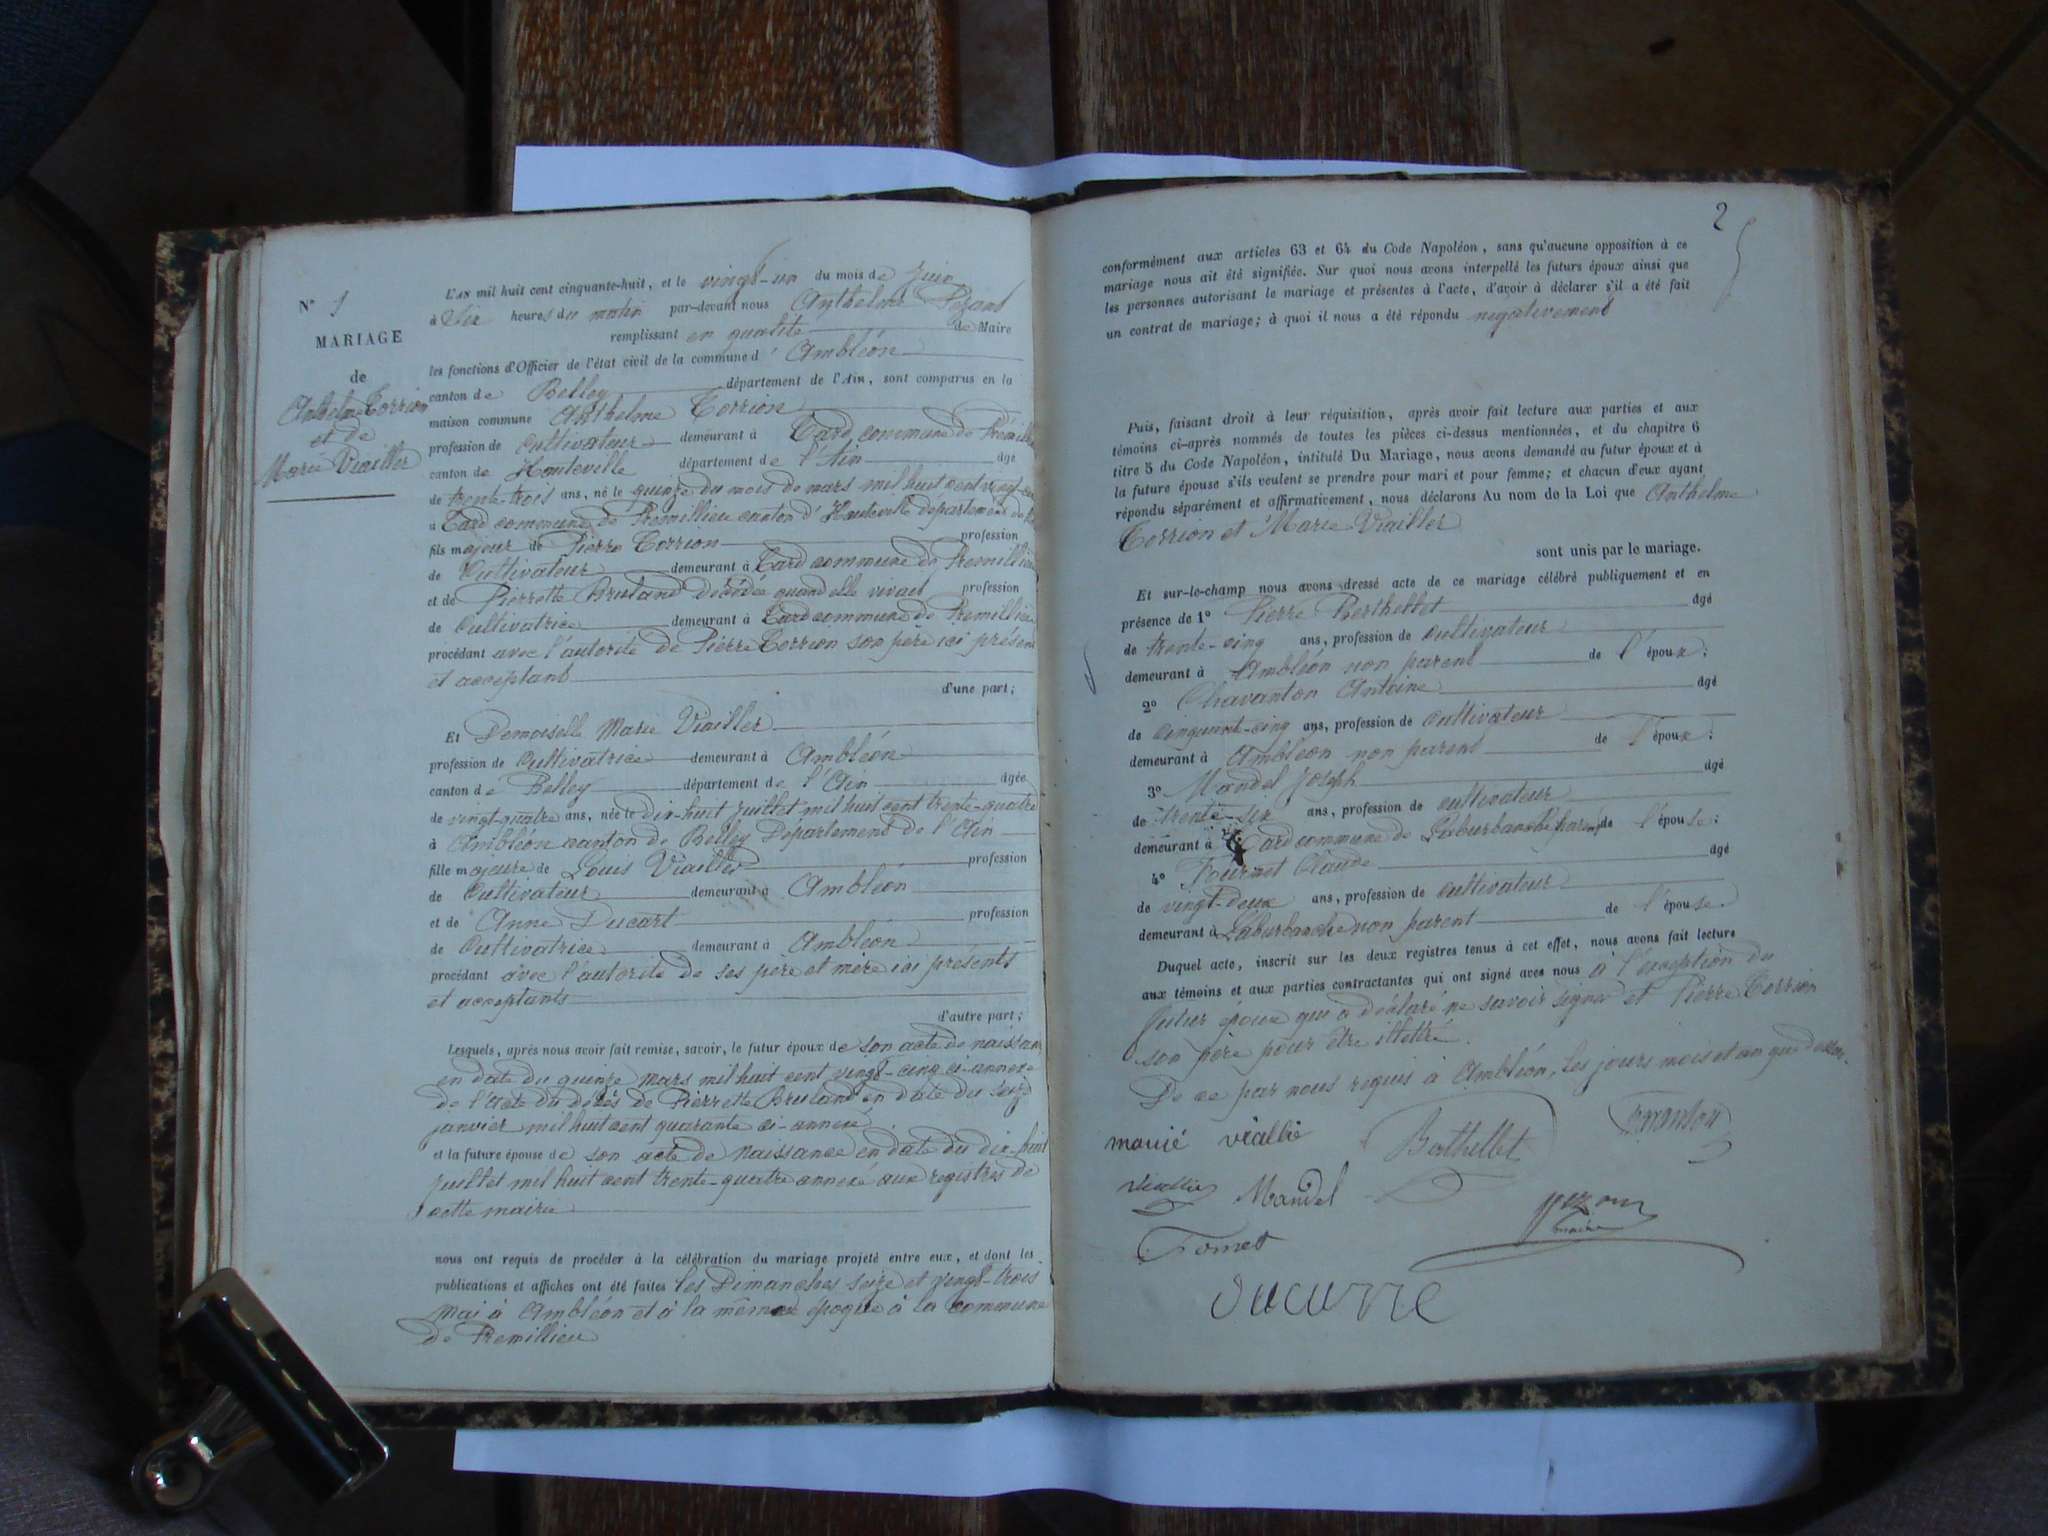 N° 1
MARIAGE
de
Anthelme Torrion
et de
Marie Viailler
L'AN mil huit cent cinquante-huit, et le vingt-un du mois de juin
à Six heures du matin par-devant nous Anthelme
remplissant en qualité de Maire
les fonctions d'Officier de l'état civil de la commune d' Ambléon
canton de Belley département de l'Ain, sont comparus en la
maison commune Anthelme Torrion
profession de Cultivateur demeurant à Tard commune de
canton de Hauteville département de l'Ain âgé
de trente-trois ans, né le quinze du mois de mars mil huit cent
à Tard commune de Premillieu canton d'Hauteville département de
fils majeur de Pierre Torrion profession
de Cultivateur demeurant à Tard commune de Premillieu
et de Pierrette Bruland décédée quand elle vivait profession
de Cultivatrice demeurant à Tard commune de Premillieu
procédant avec l'autorité de Pierre Torrion son père ici présent
et acceptant
d'une part;
Et Demoiselle Marie Viailler
profession de Cultivatrice demeurant à Ambléon
canton de Belley département de l'Ain âgée
de vingt-quatre ans, née le dix-huit juillet mil huit cent trente-quatre
à Ambléon canton de Belley Département de l'Ain
fille majeure de Louis Viailler profession
de Cultivateur demeurant à Ambléon
et de Anne Ducart profession
de Cultivatrice demeurant à Ambléon
procédant avec l'autorité de ses père et mère ici présents
et acceptants
d'autre part;
Lesquels, après nous avoir fait remise, savoir, le futur époux de son acte de
en date du quinze mars mil huit cent vingt-cinq ci-annexé
de l'acte du décès de Pierrette Bruland en date du seize
janvier mil huit cent quarante ci-annexé
et la future épouse de son acte de Naissance en date du dix-huit
juillet mil huit cent trente-quatre annexé aux registres de
cette mairie
nous ont requis de procéder à la célébration du mariage projeté entre eux, et dont les
publications et affiches ont été faites les Dimanches seize et vingt-trois
Mai à Ambléon et à la même époque à la commune
de Premillieu
2
conformément aux articles 63 et 64 du Code Napoléon, sans qu'aucune opposition à ce
mariage nous ait été signifiée. Sur quoi nous avons interpellé les futurs époux ainsi que
les personnes autorisant le mariage et présentes à l'acte, d'avoir à déclarer s'il a été fait
un contrat de mariage; à quoi il nous a été répondu négativement
Puis, faisant droit à leur réquisition, après avoir fait lecture aux parties et aux
témoins ci-après nommés de toutes les pièces ci-dessus mentionnées, et du chapitre 6
titre 5 du Code Napoléon, intitulé Du Mariage, nous avons demandé au futur époux et à
la future épouse s'ils veulent se prendre pour mari et pour femme; et chacun d'eux ayant
répondu séparément et affirmativement, nous déclarons Au nom de la Loi que Anthelme
Torrion et Marie Viailler
sont unis par le mariage.
Et sur-le-champ nous avons dressé acte de ce mariage célébré publiquement et en
présence de 1° Pierre Berthellet âgé
de trente-cinq ans, profession de cultivateur
demeurant à Ambléon non parent de l'époux;
2° Chavanton Antoine âgé
de cinquant-cinq ans, profession de cultivateur
demeurant à Ambléon non parent de l'époux;
3° Mandel Joseph âgé
de trente-six ans, profession de cultivateur
demeurant à Tard commune de de l'épouse;
4° Claude âgé
de vingt-deux ans, profession de cultivateur
demeurant à Laburbanche non parent de l'épouse.
Duquel acte, inscrit sur les deux registres tenus à cet effet, nous avons fait lecture
aux témoins et aux parties contractantes qui ont signé avec nous à l'exception du
futur époux qui a déclaré ne savoir signer et Pierre Torrion
son père pour être illettré.
De ce par nous requis à Ambléon, les jours mois et an que dessus
marie viallie Berthellet
Mandel
Fornet
Ducurre